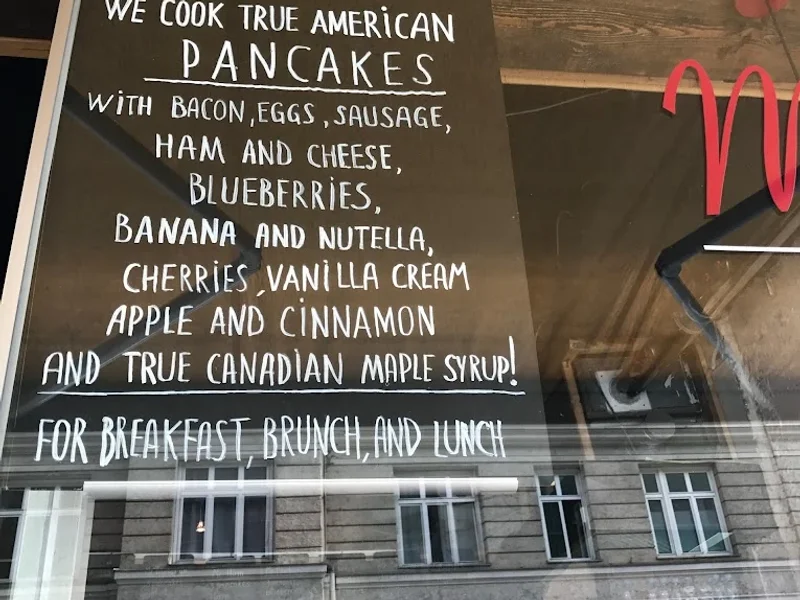 WE COOK TRUE AMERICAN
PANCAKES
WITH BACON, EGGS, SAUSAGE,
HAM AND CHEESE,
BLUEBERRIES,
BANANA AND NUTELLA,
CHERRIES, VANILLA CREAM
APPLE AND CINNAMON
AND TRUE CANADIAN MAPLE SYRUP!
FOR BREAKFAST, BRUNCH, AND LUNCH